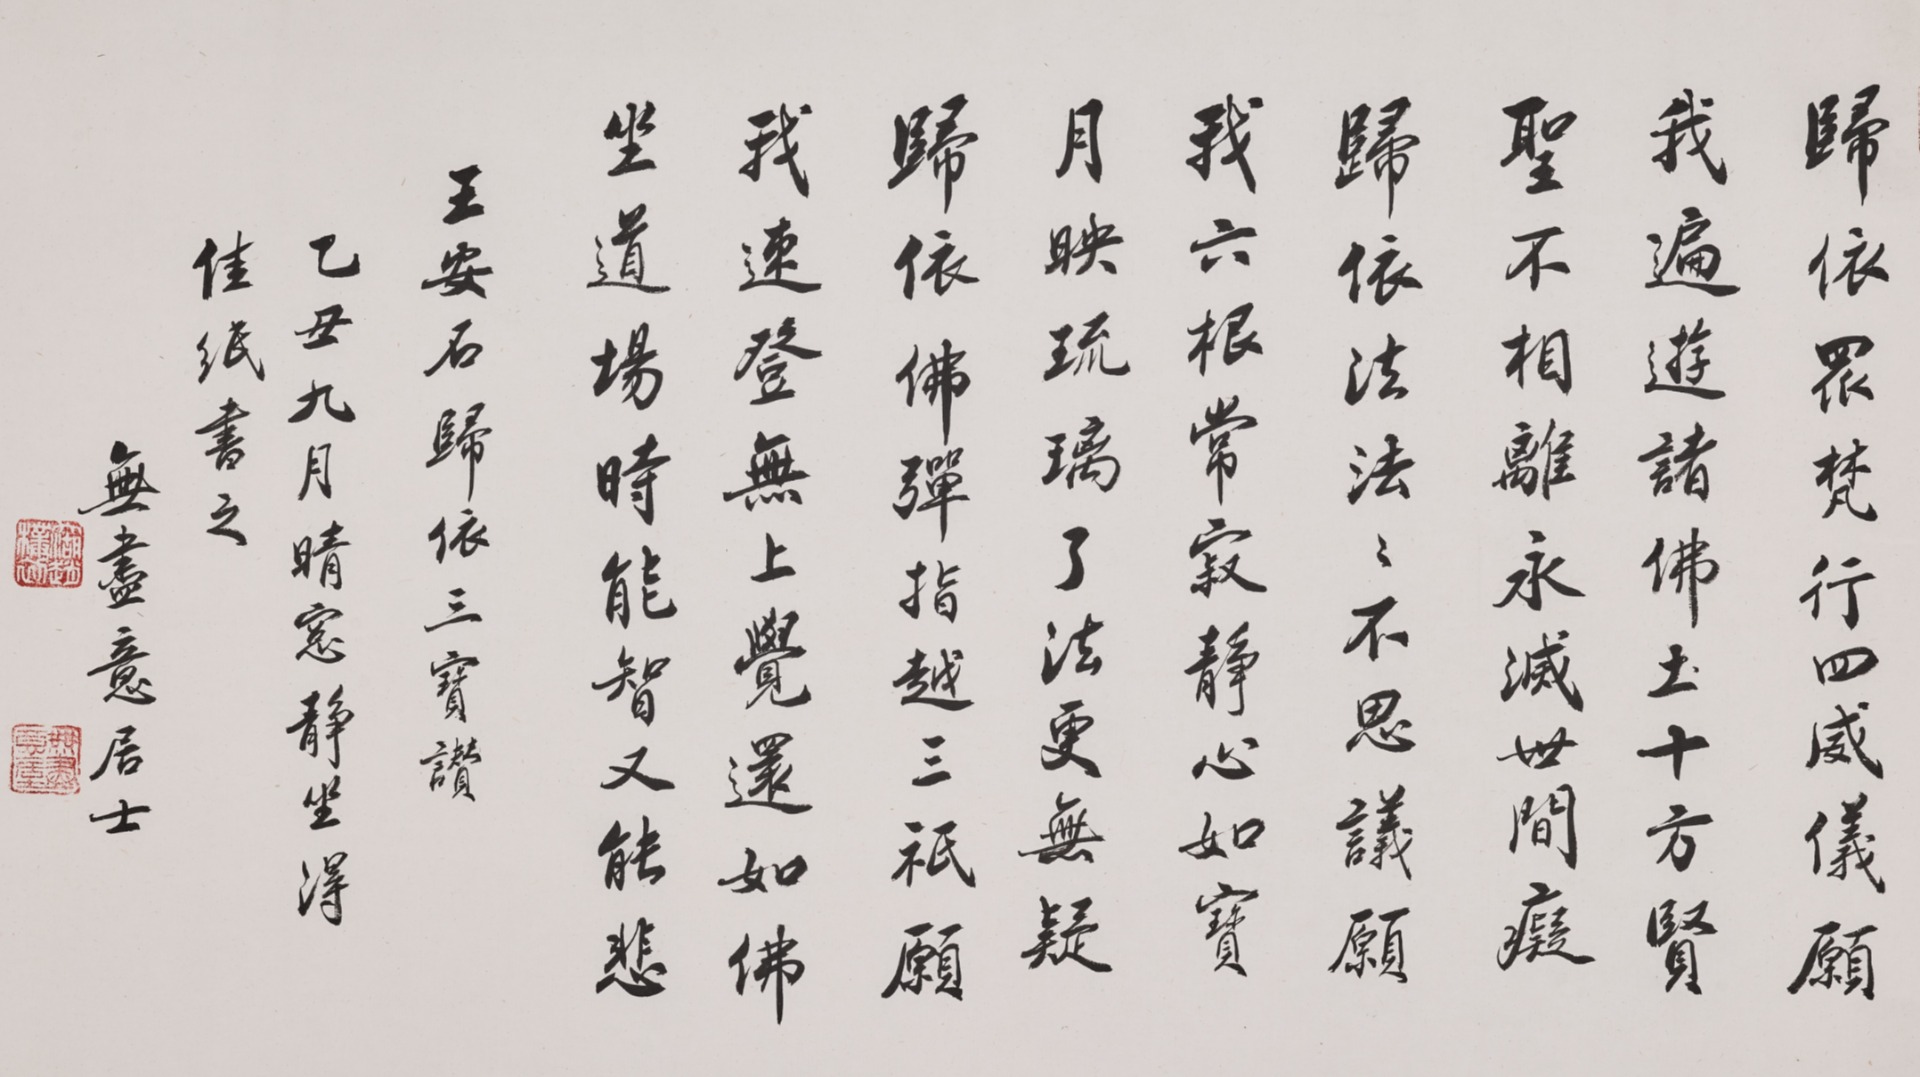 歸依眾梵行四威儀願
我遍遊諸佛土十方賢
聖不相離永滅世間癡
歸依法法〻不思議願
我六根常寂靜心如寶
月映琉璃了法更無疑
歸依佛彈指越三祇願
我速登無上覺還如佛
坐道場時能智又能悲
王安石歸依三寶讚
乙丑九月晴窓靜坐得
佳紙書之
無盡意居士